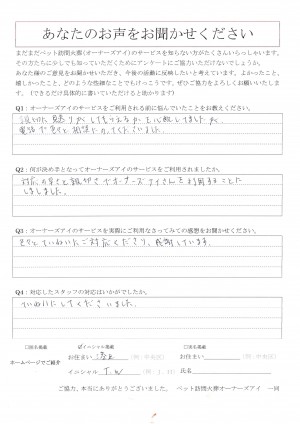 あなたのお声をお聞かせください
まだまだペット訪問火葬(オーナーズアイ)のサービスを知らない方がたくさんいらっしゃいます。
その方たちに少しでも知っていただくためにアンケートにご協力いただけないでしょうか。
あなた様のご意見をお聞かせいただき、今後の活動に反映したいと考えています。よかったこと、
嬉しかったこと、どのような些細なことでもけっこうです。ぜひご協力をよろしくお願いいたします。
(できるだけ具体的に書いていただけると助かります)
Q1:オーナーズアイのサービスをご利用される前に悩んでいたことをお教えください。
心配してましたが、
電話で色々と相談にのってくださいました。
Q2:何が決め手となってオーナーズアイのサービスをご利用されましたか。
対応の早さと親切さでオーナーズアイさんを利用することに
しました。
Q3:オーナーズアイのサービスを実際にご利用なさってみての感想をお聞かせください。
色々とていねいにご対応くださり、感謝しています。
Q4:対応したスタッフの対応はいかがでしたか。
ていねいにしてくださいました。
□匿名掲載 ☑イニシャル掲載 □実名掲載
ホームページでご紹介
お住まい (例:中央区) お住まい (例:中央区)
イニシャル T.W (例:J.H) 氏名
ご協力、本当にありがとうございました。 ペット訪問火葬オーナーズアイ 一同